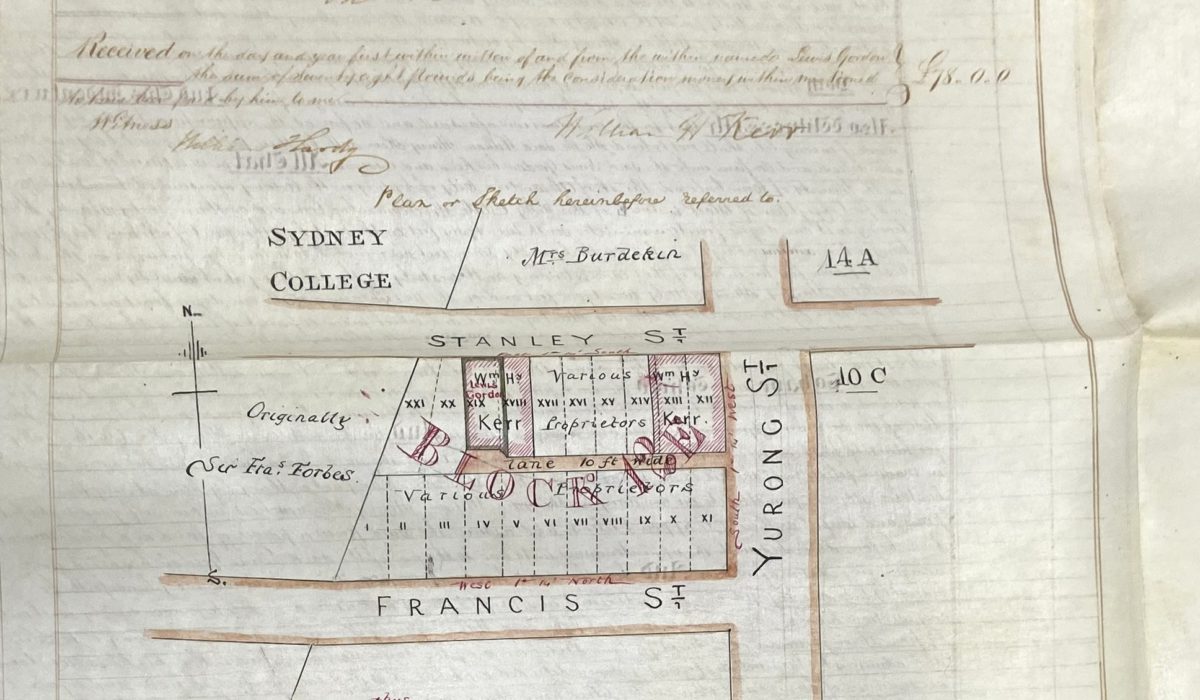 Received on the day and year first within written of and from the within named Lewis Gordon
the sum of Seventy eight Pounds being the consideration money within mentioned
to have been paid by him to me
£78.0.0
Witness
William H Kerr
Hardy
Plan or Sketch hereinbefore referred to.
SYDNEY
COLLEGE
Mrs Burdekin
14 A
N
STANLEY ST
10 C
Wm Hy
Kerr
Lewis
Gordon
Various
Proprietors
Wm Hy
Kerr.
XXI XX XIX XVIII XVII XVI XV XIV XIII XII
Originally
Sir Fras. Forbes.
BLOCK
lane 10 ft wide
Various Proprietors
I II III IV V VI VII VIII IX X XI
South 1° 14' West
YURONG ST
S.
West 1° 14' North
FRANCIS ST